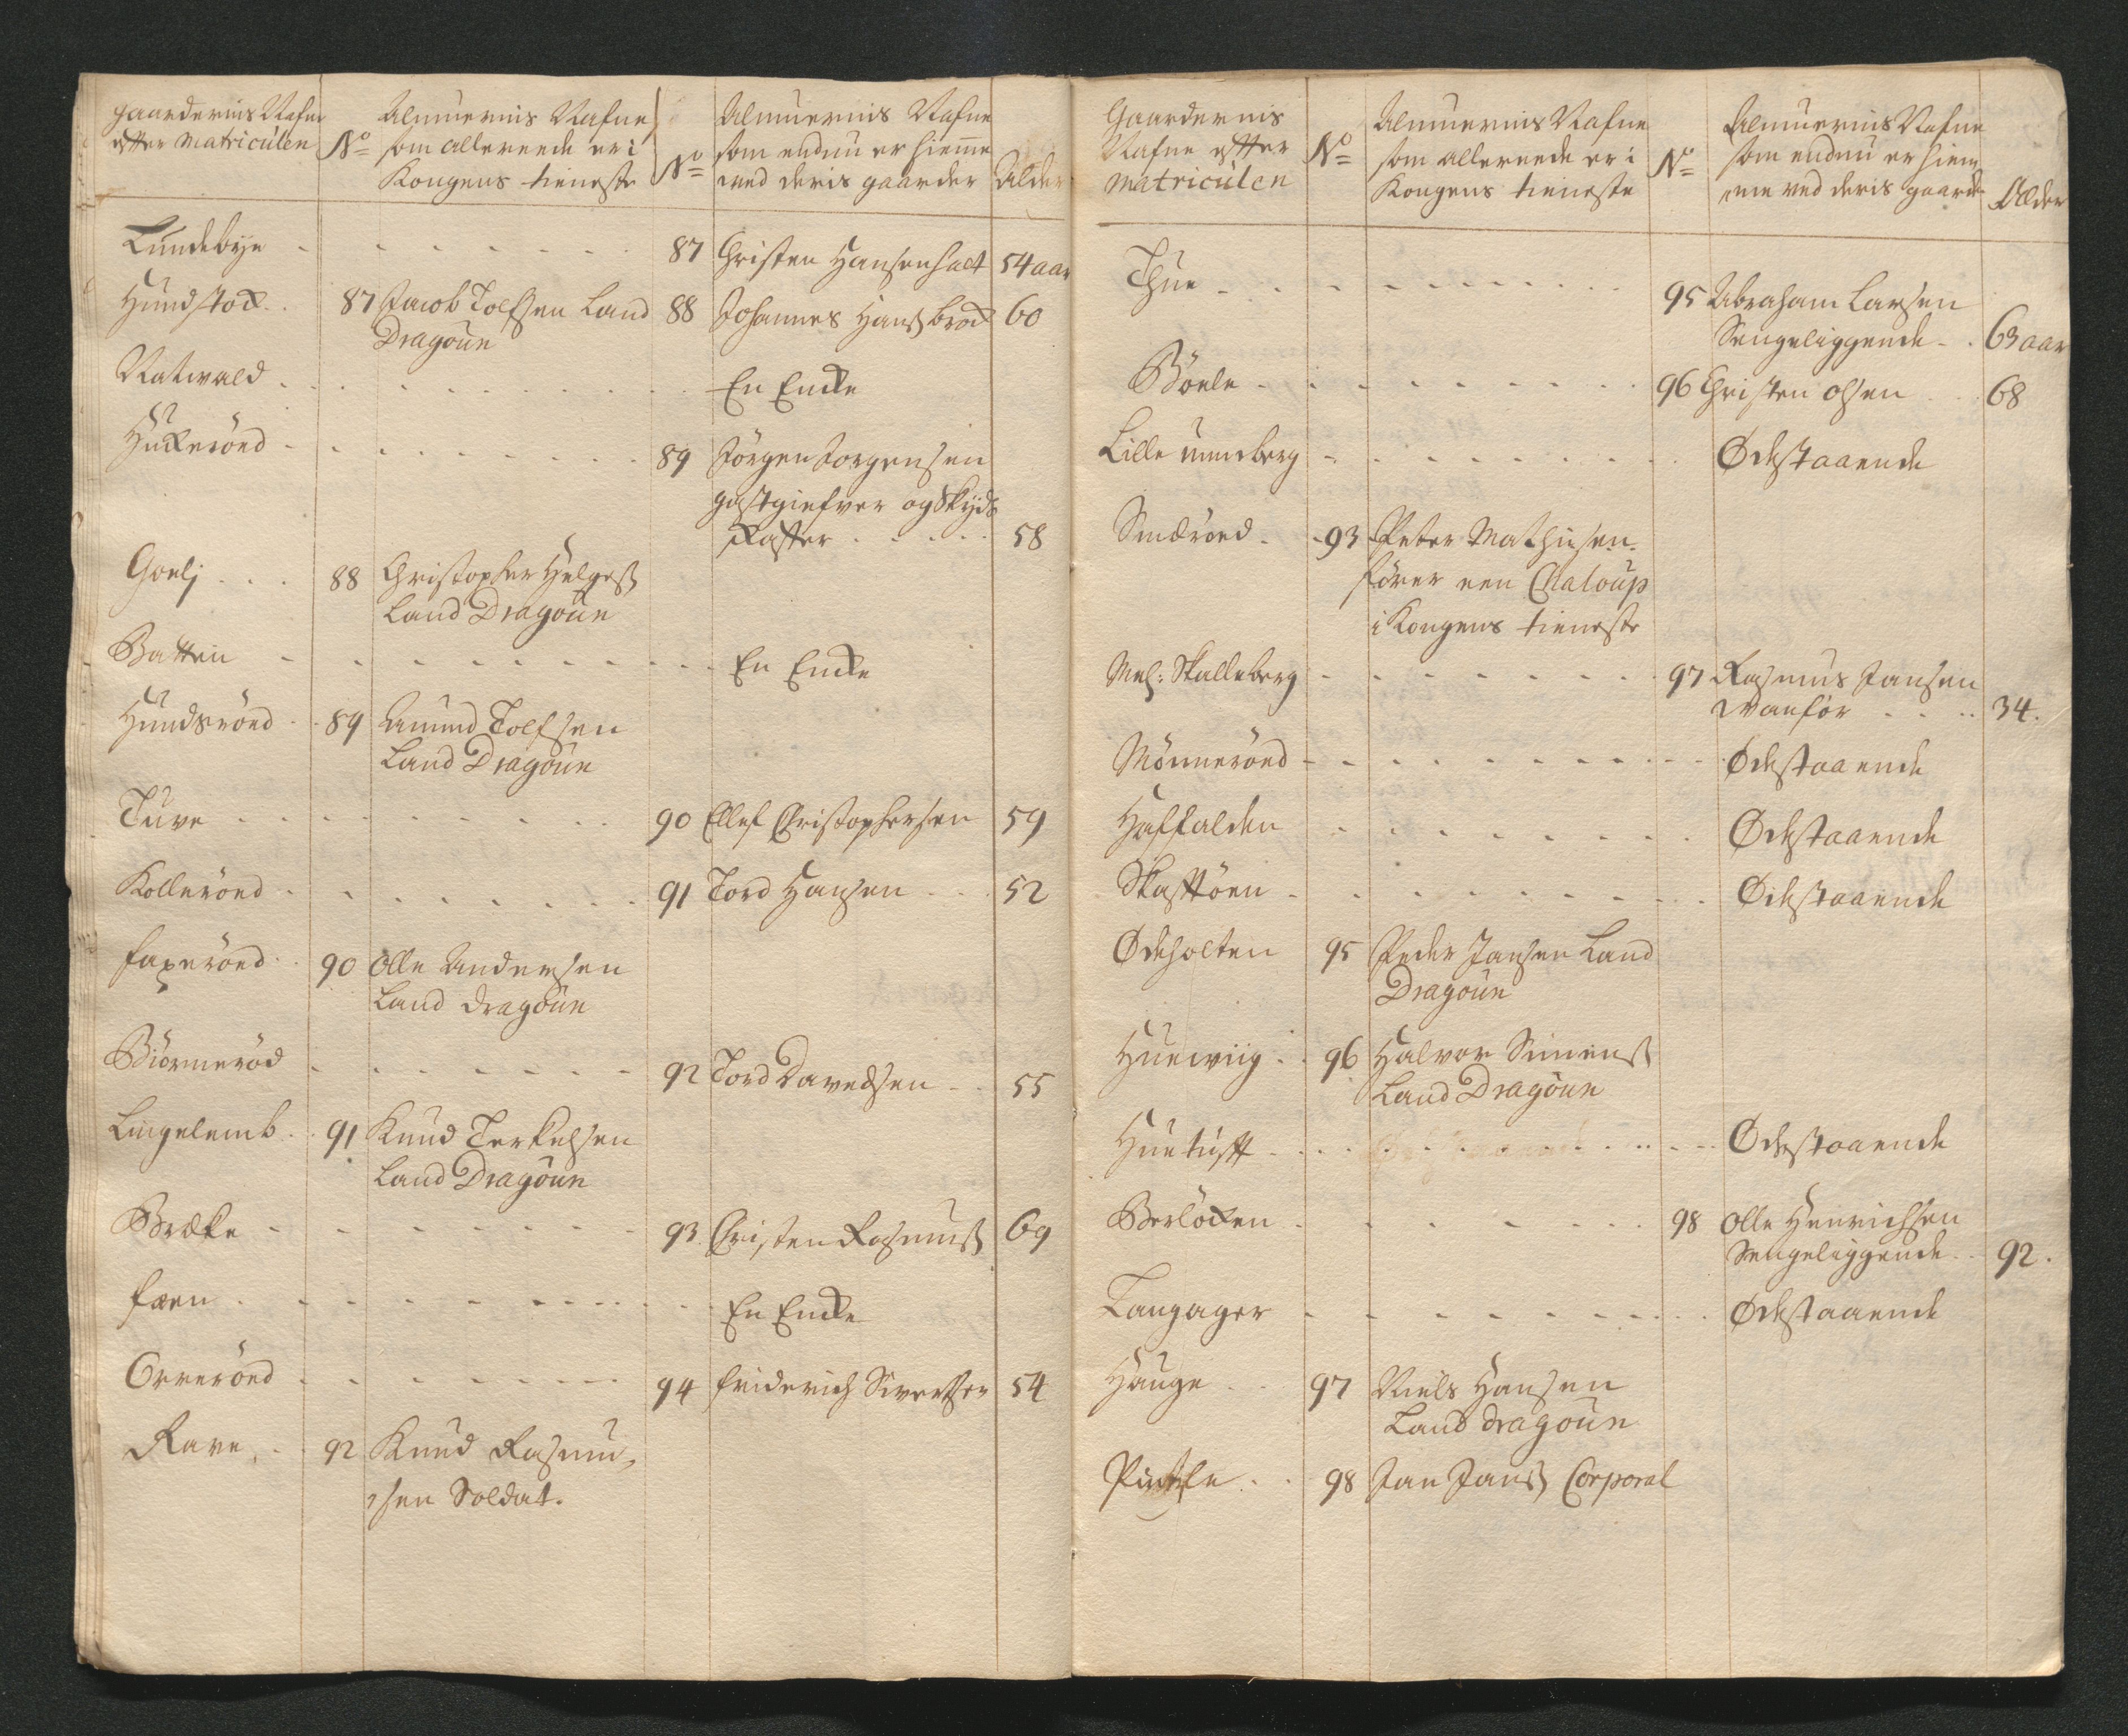 gaardernis Nafne
efter Matriculen
No
Almuernis Nafne
som allereede er i
Kongens tieneste
No
Almuernis Nafne
som endnu er hiemme
ved deris gaarder
Alder
Lundebye - - - - - - - 87 Christen Hansen halt 54 aar
Hundstock . . 87 Jacob Tolfsen Land 88 Johannes Hanss brock 60
Dragoun
Natwald - - - - - - - En Encke
Huckerönd - - - - - - - 89 Jörgen Jorgensen
gastgiefver og Skyds
skaffer . . . . . 58
Goelj . . . 88 Christopher Helgess
Land Dragoun
Batten - - - - - - - En Encke
Hundsrönd . . 89 Amund Tolfsen
Land Dragoun
Tuve - - - - - - - 90 Ellef Christophersen 59
Kollerönd - - - - - - - 91 Tord Hansen . . . 52
faxerönd . . 90 Olle Andersen
Land dragoun
Biörneröd - - - - - - - 92 Tord Davedsen - . . 55
Lingelemb . . 91 Knud Terkelsen
Land Dragoun
Bræke - - - - - - - 93 Christen Rasmuss 69
foen - - - - - - - En Encke
Orrerönd - - - - - - - 94 friderich Sivertsen 54
Rave . . 92 Knud Rasmu,
,sen Soldat.
Gaardernis
Nafne efter
Matriculen
No
Almuernis Nafne
som allereede er i
Kongens tieneste
No
Almuernis Nafne
som endnu er hiem,
,me ved deris gaarde
Alder
Thue - - - - - - - 95 Abraham Larsen
Sengeliggende - . 63 aar
Böele - - - - - - - 96 Christen Olsen . . 68
Lille Unneberg - - - - - - - Ödestaaende
Smærönd . . 93 Peter Mathiesen
förer een Chaloup
i Kongens tieneste
Mel: Skalleberg - - - - - - - 97 Rasmus Jansen
Vanför . . . . 34.
Mönnerönd - - - - - - - Ödestaaende
Haffalden - - - - - - - Ödestaaende
Skattöen - - - - - - - Ödestaaende
Ödeholten 95 Peder Jansen Land
Dragoun
Huewiig . . 96 Halvor Simenss
Land Dragoun
Huetuft - - - - - - - Ödestaaende
Berlöcken - - - - - - - 98 Olle Henrichsen
Sengeliggende . . 92.
Langager - - - - - - - Ödestaaende
Hauge . . . 97 Niels Hansen
Land dragoun
98 Jan Janss Corporal